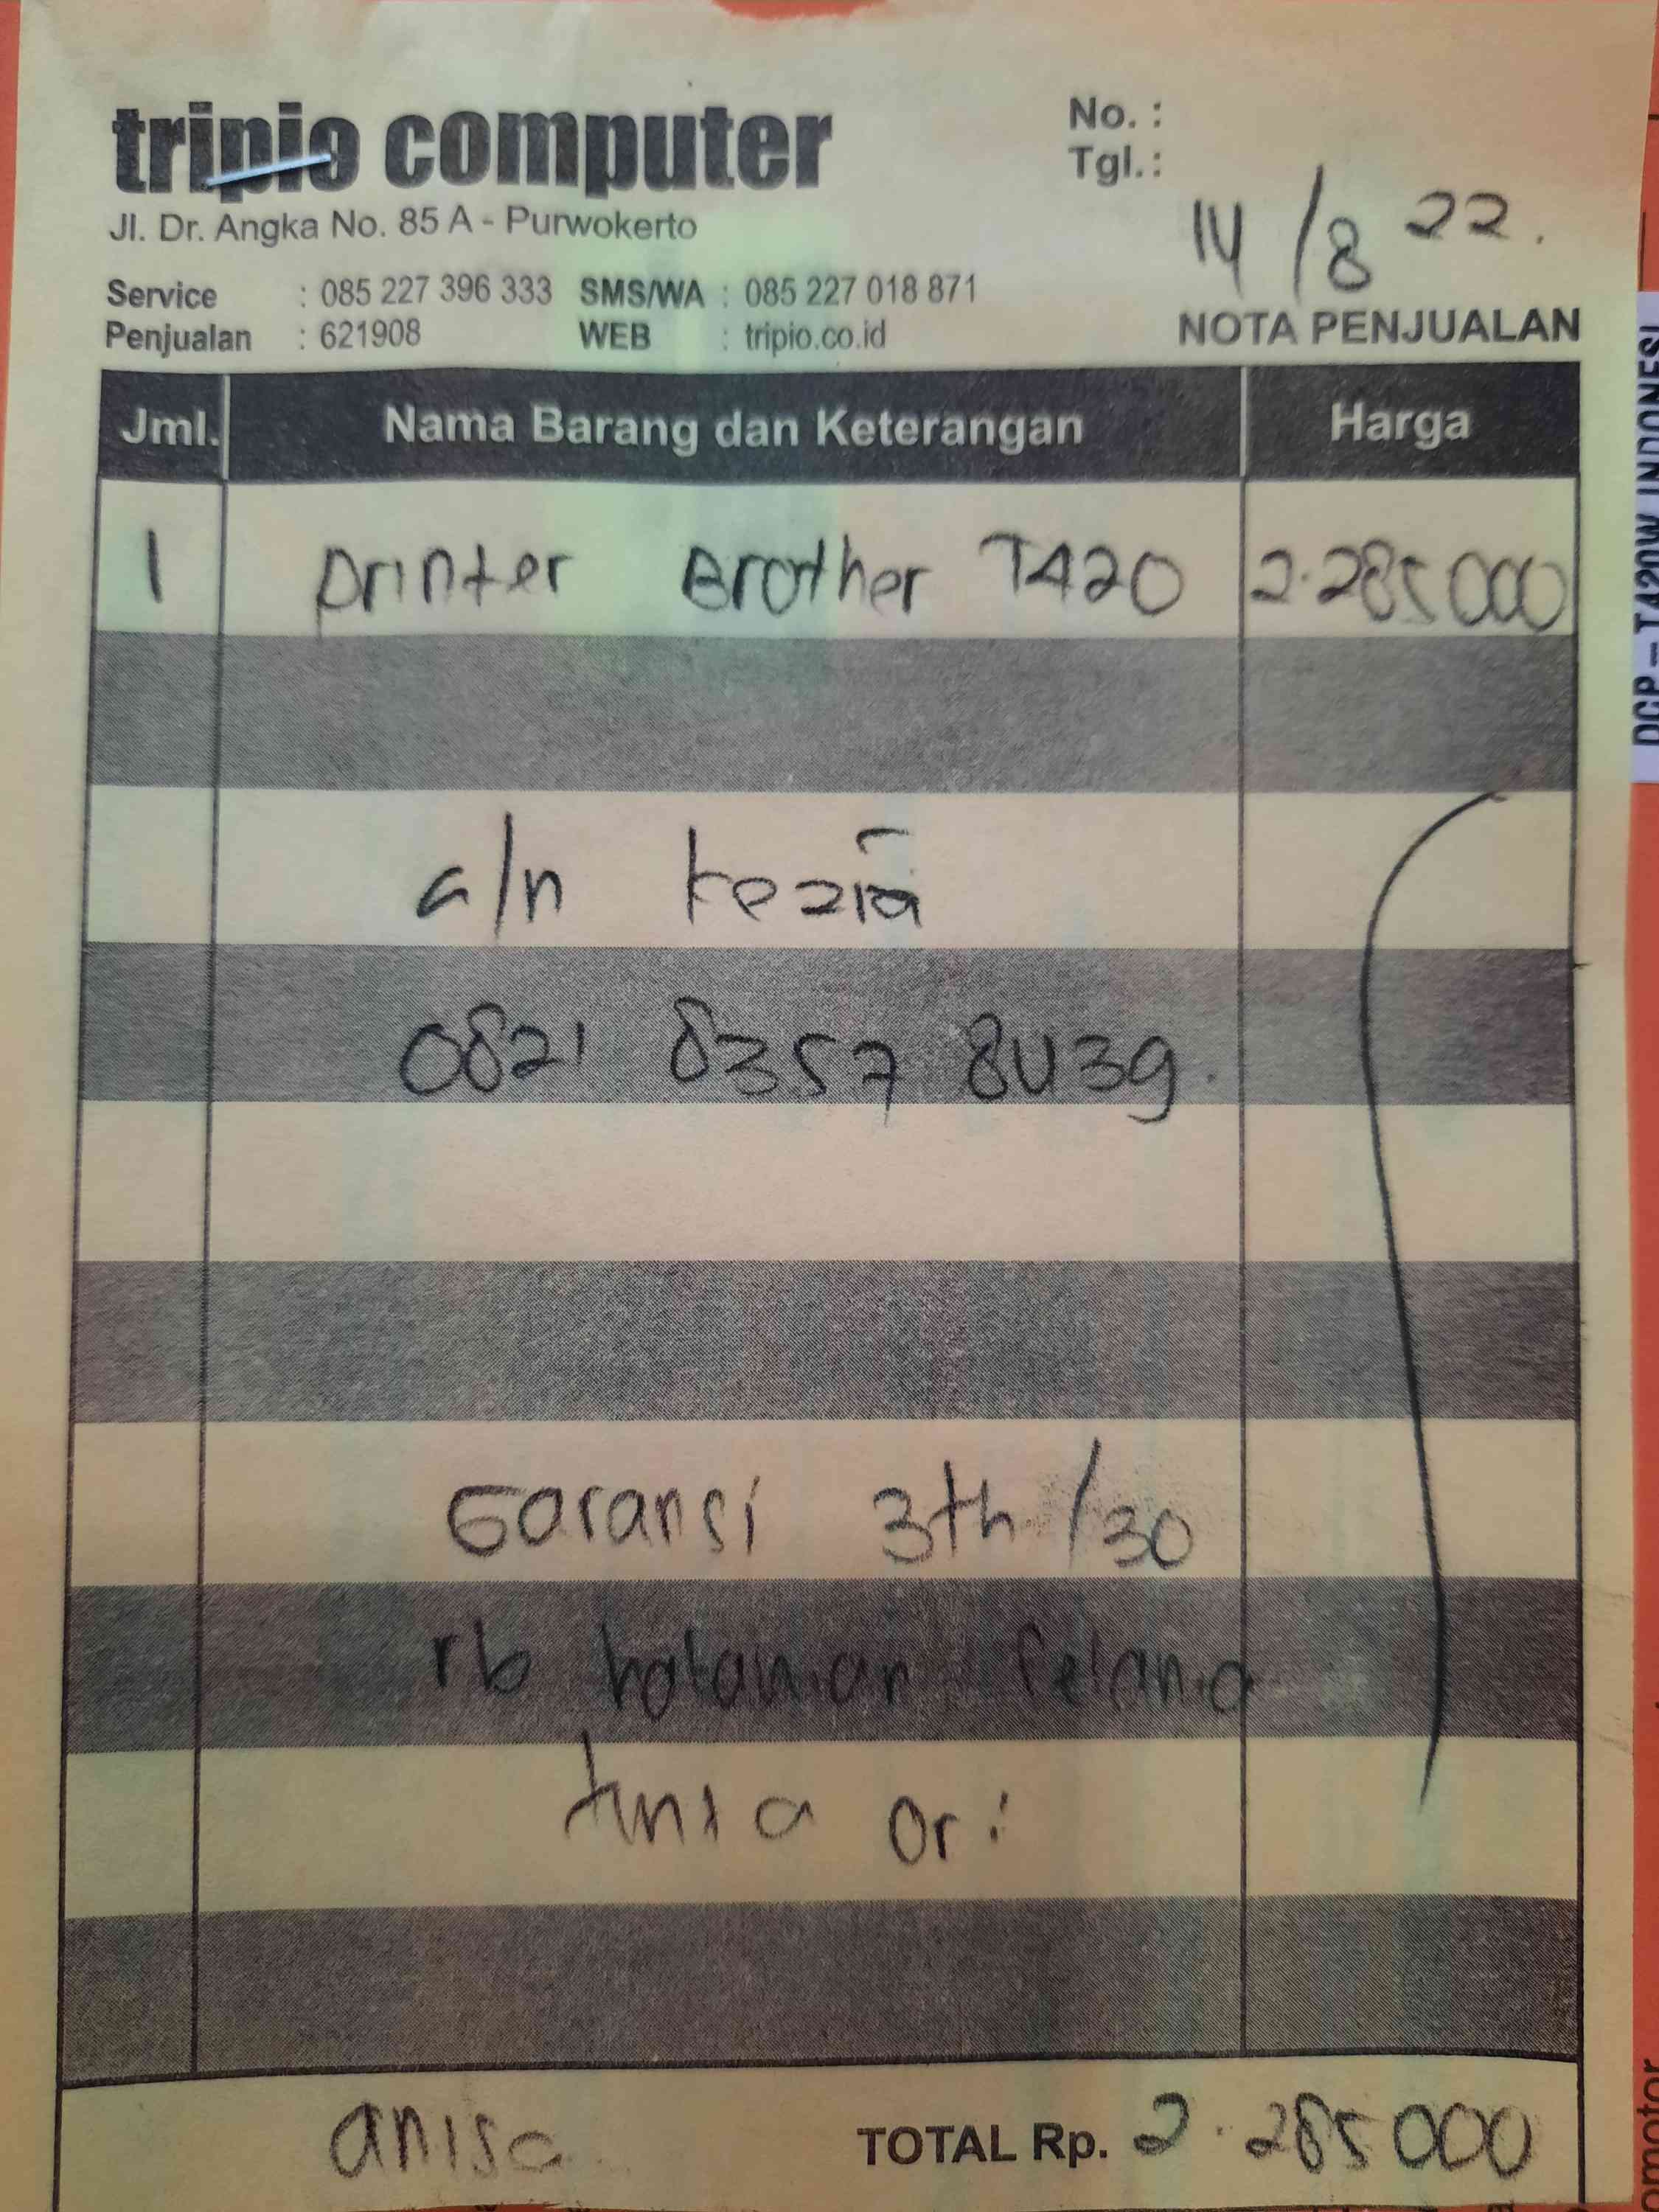 tripio computer
Jl. Dr. Angka No. 85 A - Purwokerto
No. :
Tgl. :
14/8 22.
Service : 085 227 396 333 SMS/WA : 085 227 018 871
Penjualan : 621908 WEB : tripio.co.id
NOTA PENJUALAN
Jml. Nama Barang dan Keterangan Harga
1 printer Brother T420 2.285000
a/n kezia
0821 8357 8439.
Garansi 3th /30
rb
tinta ori
anisa
TOTAL Rp. 2.285000
DCP-T420W INDONESI